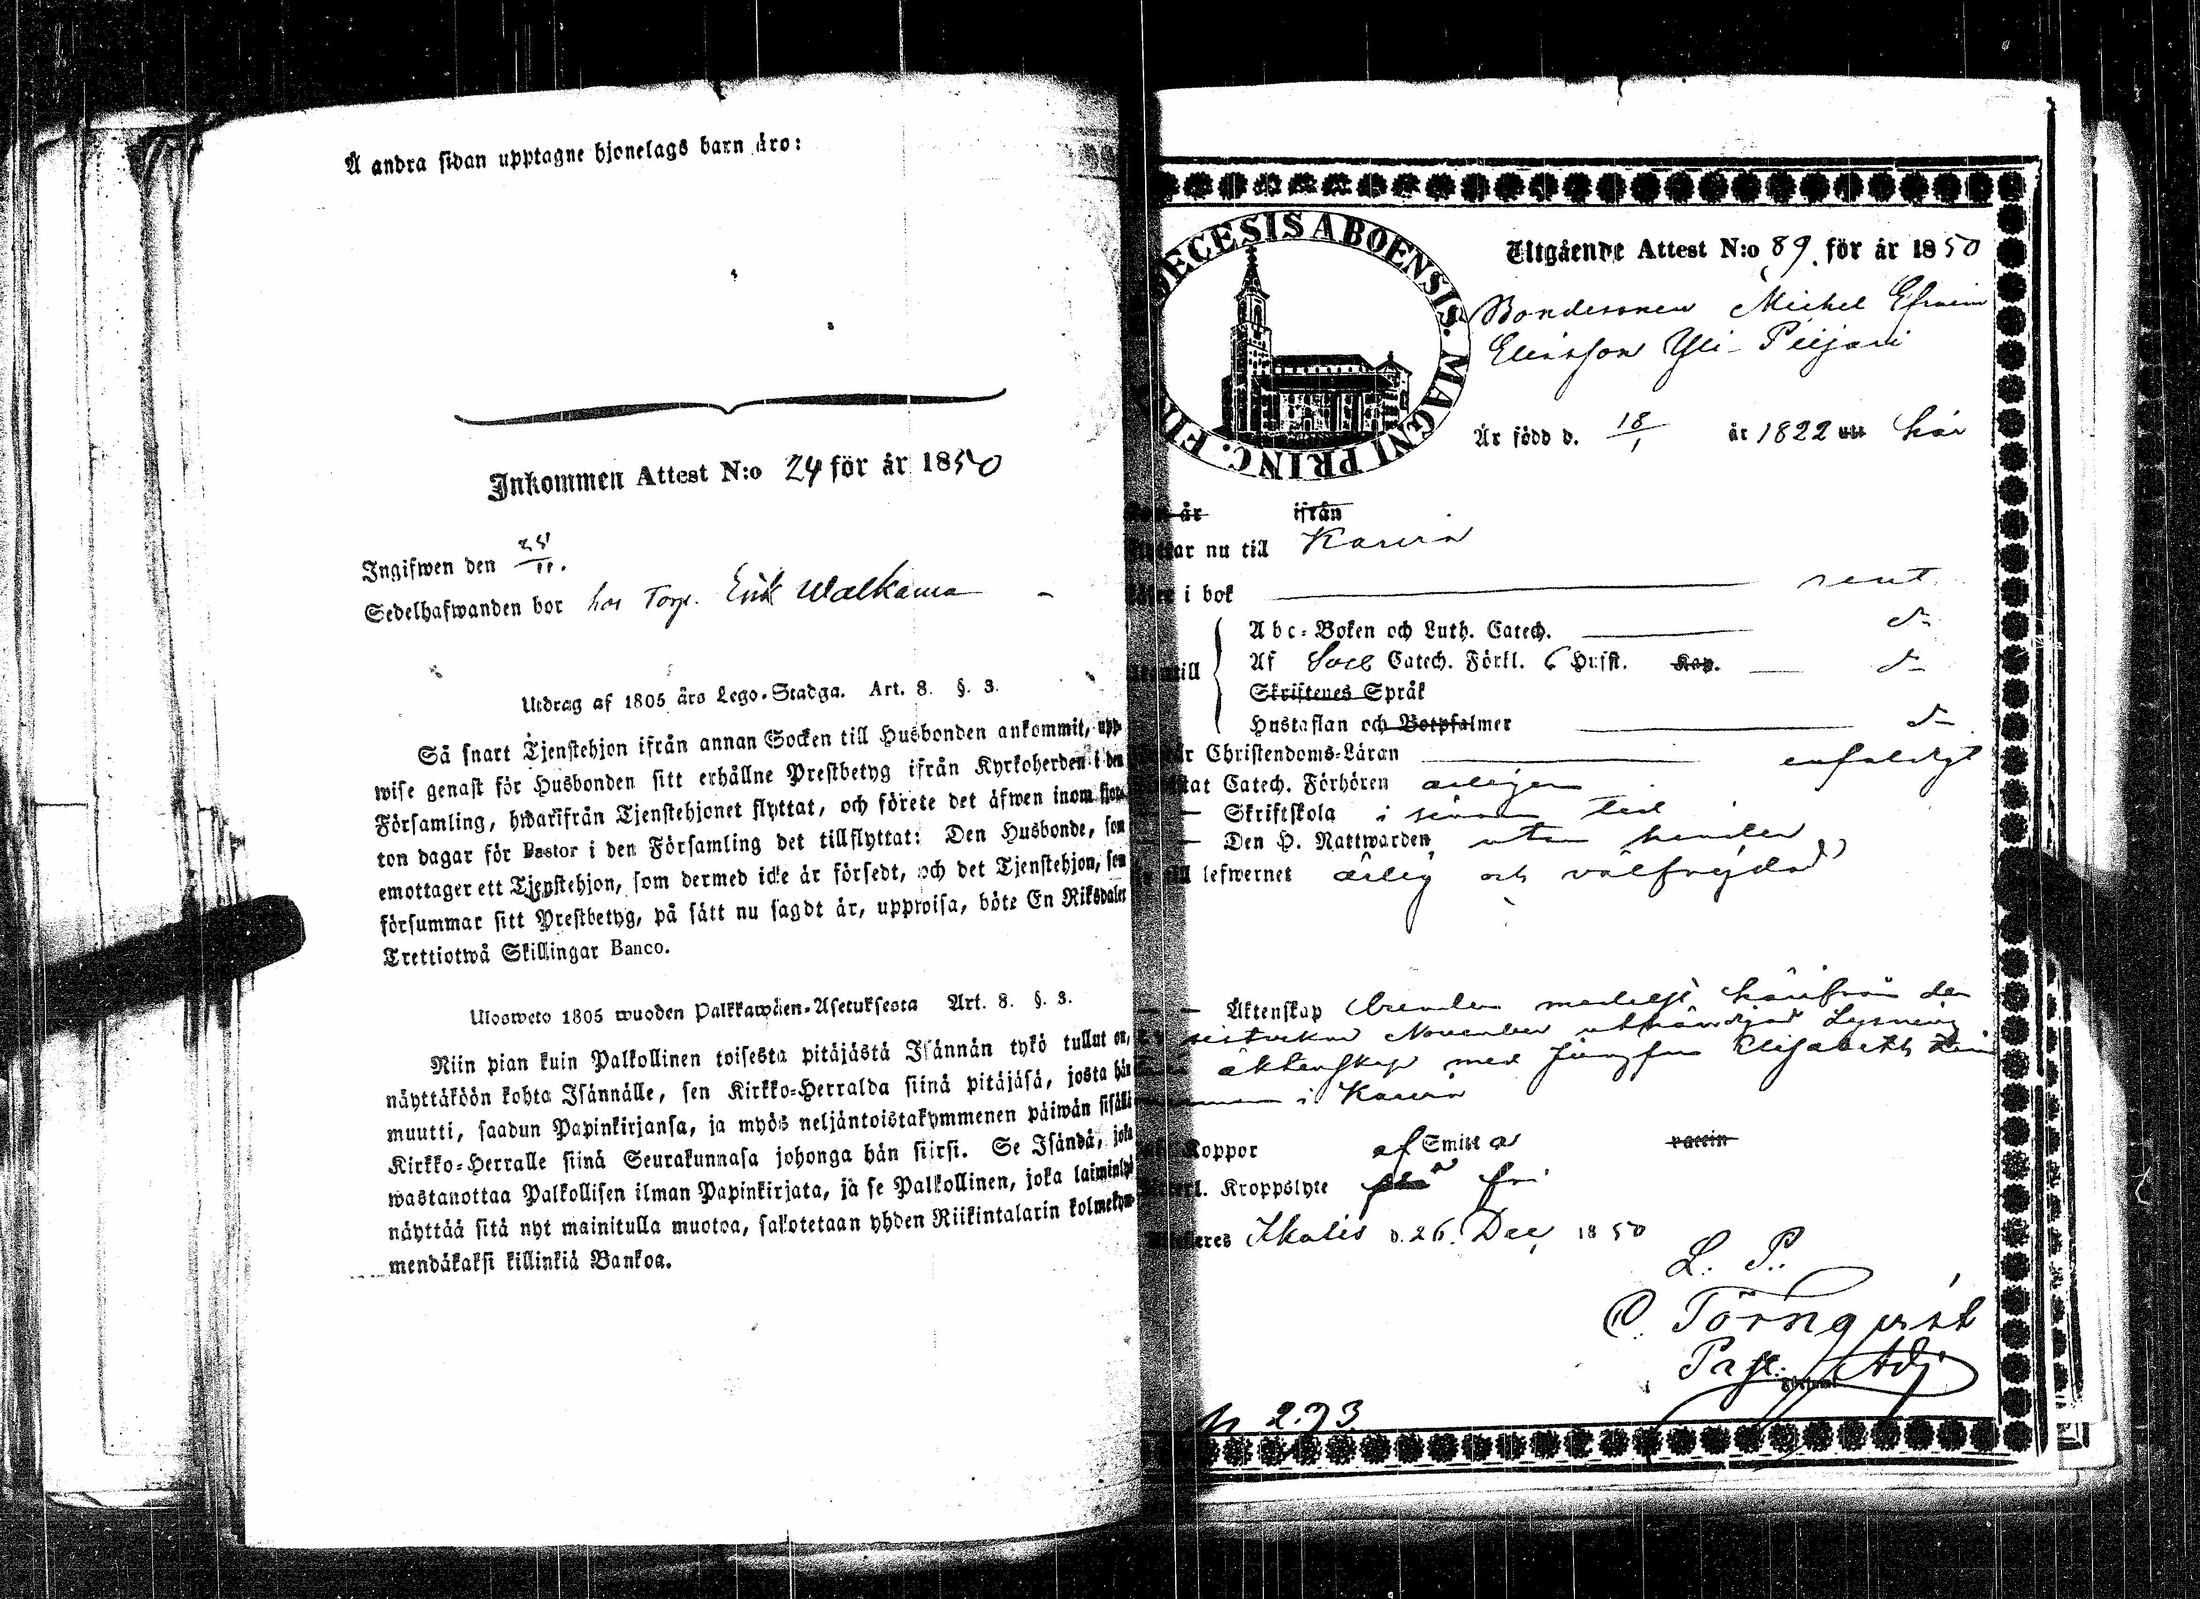 Å andra sidan upptagne hjonelags barn äro:
Inkommen Attest N:o 24 för år 1850
Ingifwen den 25/11.
Sedelhafwanden bor hos Torp. Erik Walkama
Utdrag af 1805 års Lego-Stadga. Art. 8. §. 3.
Så snart Tjenstehjon ifrån annan Socken till Husbonden ankommit, upp-
wise genast för Husbonden sitt erhållne Prestbetyg ifrån Kyrkoherden i den
Församling, hwarifrån Tjenstehjonet flyttat, och förete det äfwen inom fjor-
ton dagar för Pastor i den Församling det tillflyttat: Den Husbonde, som
emottager ett Tjenstehjon, som dermed icke är försedt, och det Tjenstehjon, som
försummar sitt Prestbetyg, på sätt nu sagdt är, uppwisa, böte En Riksdaler
Trettiotwå Skillingar Banco.
Ulosweto 1805 wuoden Palkkawäen-Asetuksesta Art. 8. §. 3.
Niin pian kuin Palkollinen toisesta pitäjästä Isännän tykö tullut on,
näyttäköön kohta Isännälle, sen Kirkko-Herralda siinä pitäjäsä, josta hän
muutti, saadun Papinkirjansa, ja myös neljäntoistakymmenen päiwän sisällä
Kirkko-Herralle siinä Seurakunnasa johonga hän siirsi. Se Isändä, joka
wastanottaa Palkollisen ilman Papinkirjata, ja se Palkollinen, joka laiminlyö
näyttää sitä nyt mainitulla muotoa, sakotetaan yhden Riikintalarin kolmekym-
mendäkaksi killinkiä Bankoa.
DECESIS ABOENSIS. MAGNI PRINC. FIN
Utgående Attest N:o 89. för år 1850
Bondesonen Michel Efraim
Eliasson Yli-Piijari
Är född d. 18/1 år 1822 uti här
är ifrån
nu till Karvia
i bok rent
Abc-Boken och Luth. Catech. d:o
Af Sveb Catech. Förkl. 6 Hufst. Kap. d:o
Skriftenes Språk
Hustaflan och Botpsalmer d:o
Christendoms-Läran enfaldigt
Catech. Förhören årligen
Skriftskola i sinom tid
Den H. Nattwarden utan hinder
till lefwernet ärlig och välfrejdad
Äktenskap härifrån den
November Lysning
äktenskap med jungfru Elisabeth
i Karvia
Koppor af Smitta vaccin
Kroppslyte fri
Ikalis d. 26. Dec. 1850
L. P.
C. Törnqvist
Past. Adj
N 273